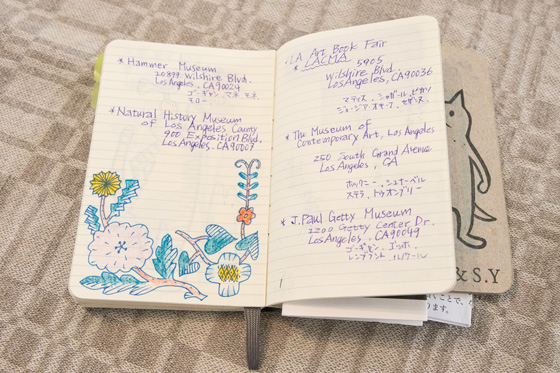 * Hammer Museum
10899 Wilshire Blvd.
Los Angeles, CA90024
ゴーギャン、マネ、モネ、
モロー
* Natural History Museum
of Los Angeles County
900 Exposition Blvd.
Los Angeles, CA90007
LA Art Book Fair
* LACMA 5905
Wilshire Blvd.
Los Angeles, CA90036
マティス、シャガール、ピカソ
ジョージア・オキーフ、セザンヌ、
* The Museum of
Contemporary Art, Los Angeles
250 South Grand Avenue
Los Angeles, CA
ホックニー、シュナーベル
ステラ、トゥオンブリー
* J. Paul Getty Museum
1200 Getty Center Dr.
Los Angeles, CA90049
ゴーギャン、ゴッホ、
レンブラント、ルノワール
& S.Y